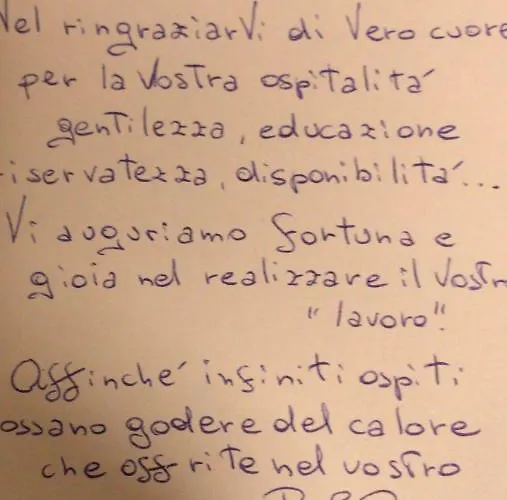 Nel ringraziarVi di Vero cuore
per la Vostra ospitalità
gentilezza, educazione
riservatezza, disponibilità...
Vi auguriamo fortuna e
gioia nel realizzare il Vostro
"lavoro".
Affinché infiniti ospiti
possano godere del calore
che offrite nel vostro